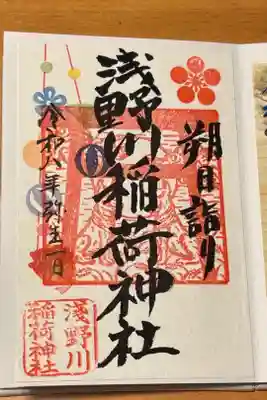 朔日詣り
浅野川稲荷神社
令和八年弥生一日
淺野川
稲荷神社